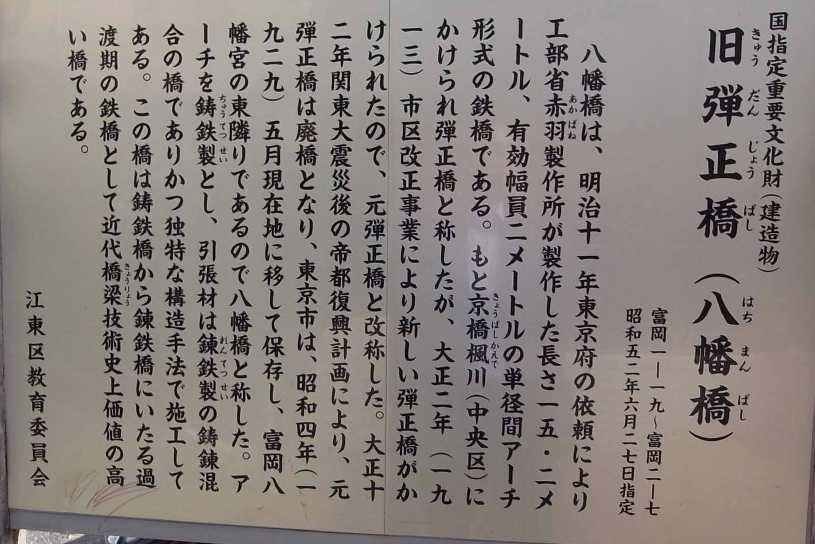 国指定重要文化財(建造物)
旧弾正橋(八幡橋)
きゅう だん じょう ばし はち まん ばし
富岡一―一九〜富岡二―七
昭和五二年六月二七日指定
八幡橋は、明治十一年東京府の依頼により
工部省赤羽製作所が製作した長さ一五・二メ
あかばね
ートル、有効幅員二メートルの単径間アーチ
形式の鉄橋である。もと京橋楓川(中央区)に
きょうばしかえで
かけられ弾正橋と称したが、大正二年(一九
一三)市区改正事業により新しい弾正橋がか
けられたので、元弾正橋と改称した。大正十
二年関東大震災後の帝都復興計画により、元
弾正橋は廃橋となり、東京市は、昭和四年(一
九二九)五月現在地に移して保存し、富岡八
幡宮の東隣りであるので八幡橋と称した。ア
ーチを鋳鉄製とし、引張材は錬鉄製の鋳錬混
ちゅうてつせい れんてつせい
合の橋でありかつ独特な構造手法で施工して
ある。この橋は鋳鉄橋から錬鉄橋にいたる過
渡期の鉄橋として近代橋梁技術史上価値の高
きょうりょう
い橋である。
江東区教育委員会